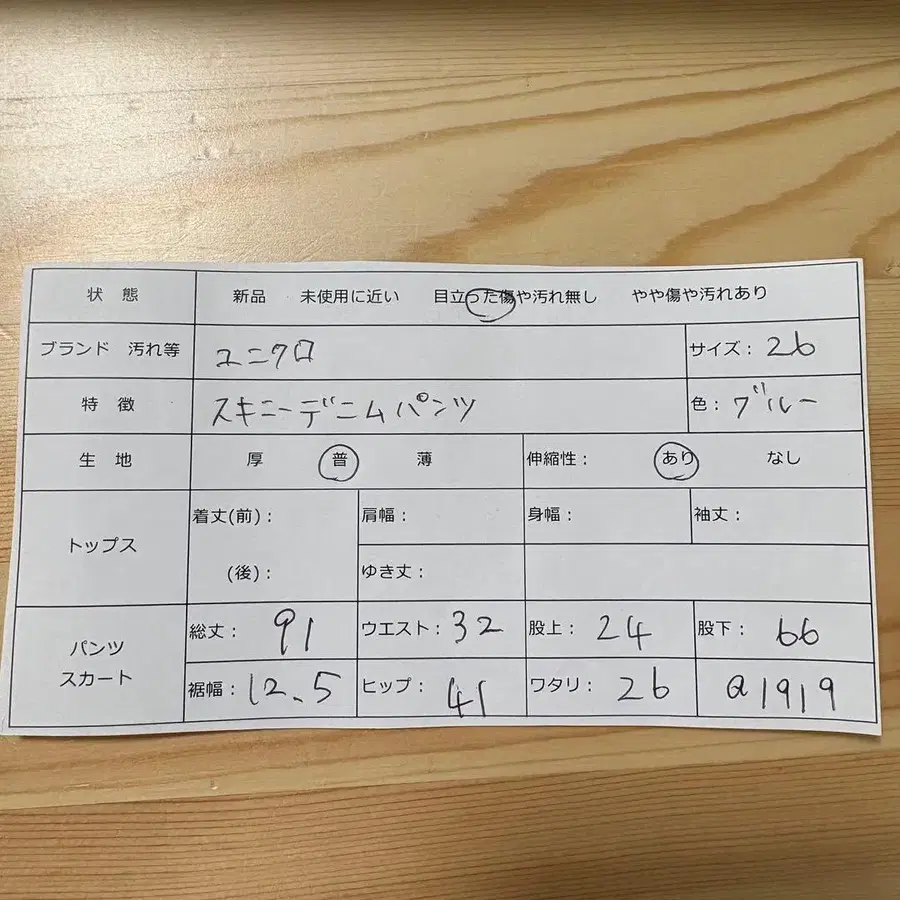 状 態 新品 未使用に近い 目立った傷や汚れ無し やや傷や汚れあり
ブランド 汚れ等 ユニクロ サイズ: 26
特 徴 スキニーデニムパンツ 色: ブルー
生 地 厚 普 薄 伸縮性: あり なし
トップス 着丈(前): 肩幅: 身幅: 袖丈:
(後): ゆき丈:
パンツ スカート 総丈: 91 ウエスト: 32 股上: 24 股下: 66
裾幅: 12.5 ヒップ: 41 ワタリ: 26 a1919